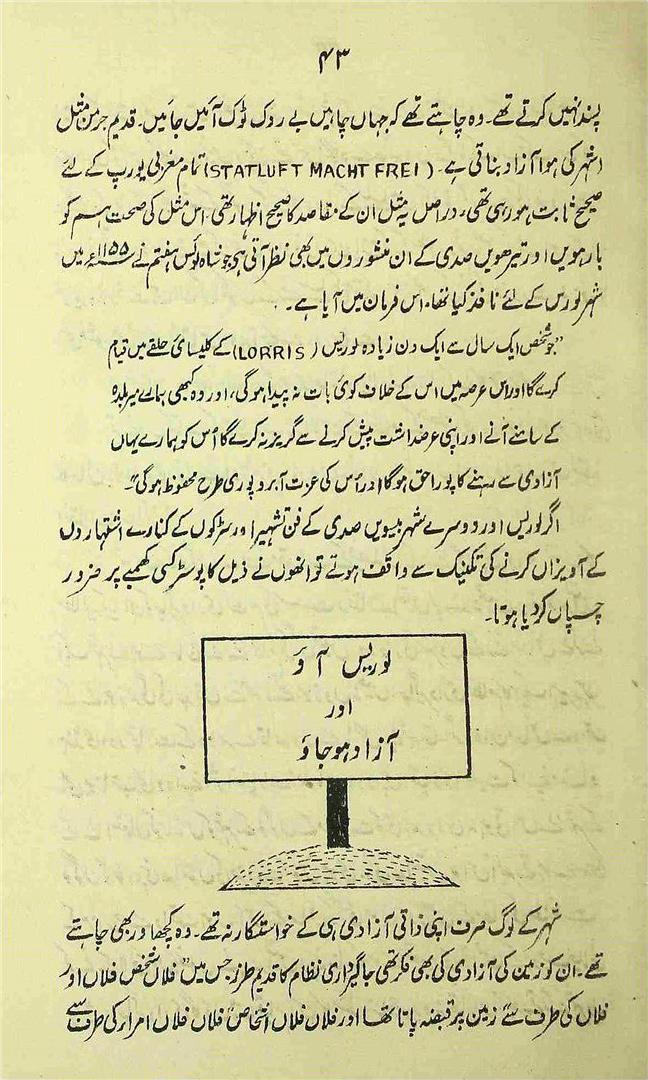 ۴۳
پسند نہیں کرتے تھے۔ وہ چاہتے تھے کہ جہاں چاہیں بے روک ٹوک آئیں جائیں۔ قدیم جرمن مثل
(شہر کی ہوا آزاد بناتی ہے۔ (STATLUFT MACHT FREI) تمام مغربی یورپ کے لئے
صحیح ثابت ہو رہی تھی۔ دراصل یہ مثل ان کے مقاصد کا صحیح اظہار تھی۔ اس مثل کی صحت ہم کو
بارہویں اور تیرھویں صدی کے ان منشوروں میں بھی نظر آتی ہے جو شاہ لوئس ہفتم نے ۱۱۵۵ء میں
شہر لورس کے لئے نافذ کیا تھا۔ اس فرمان میں آیا ہے۔
”جو شخص ایک سال سے ایک دن زیادہ لوریس (LORRIS) کے کلیسائی حلقے میں قیام
کرے گا اور اس عرصہ میں اس کے خلاف کوئی بات نہ پیدا ہوگی، اور وہ کبھی ہمارے میر بلدہ
کے سامنے آنے اور اپنی عرضداشت پیش کرنے سے گریز نہ کرے گا اُس کو ہمارے یہاں
آزادی سے رہنے کا پورا حق ہوگا اور اُس کی عزت آبرو پوری طرح محفوظ ہوگی“۔
اگر لوریس اور دوسرے شہر بیسویں صدی کے فن تشہیر اور سڑکوں کے کنارے اشتہاروں
کے آویزاں کرنے کی تکنیک سے واقف ہوتے تو انھوں نے ذیل کا پوسٹر کسی کھمبے پر ضرور
چسپاں کر دیا ہوتا۔
لوریس آؤ
اور
آزاد ہو جاؤ
شہر کے لوگ صرف اپنی ذاتی آزادی ہی کے خواستگار نہ تھے۔ وہ کچھ اور بھی چاہتے
تھے۔ ان کو زمین کی آزادی کی بھی فکر تھی جاگیرداری نظام کا قدیم طرز جس میں ”فلاں شخص فلاں اور
فلاں کی طرف سے“ زمین پر قبضہ پاتا تھا اور فلاں فلاں اشخاص فلاں فلاں امراء کی طرف سے